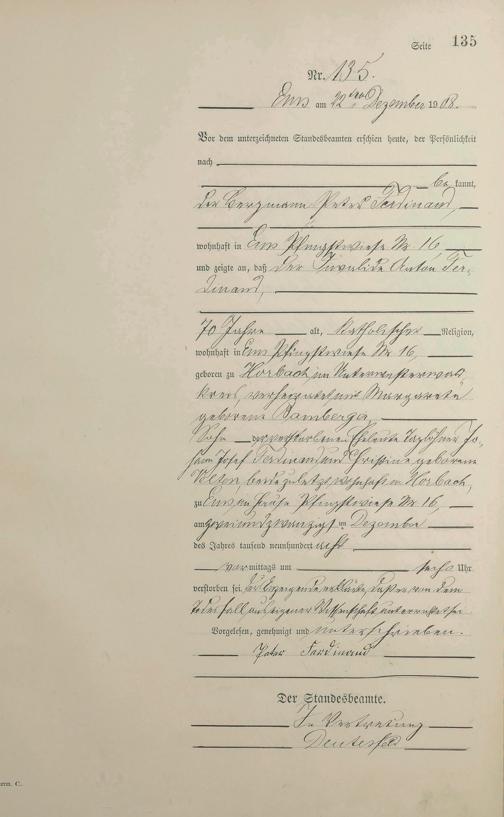 Seite 135
Nr. 135.
Ems am 22ten Dezember 1908.
Vor dem unterzeichneten Standesbeamten erschien heute, der Persönlichkeit
nach
be kannt,
der Bergmann Peter Ferdinand,
wohnhaft in Ems Pfingstwiese Nr. 16,
und zeigte an, daß der Invalide Anton Fer-
dinand,
70 Jahre alt, katholischer Religion,
wohnhaft in Ems Pfingstwiese Nr. 16,
geboren zu Horbach, im Unterwesterwald-
kreis, verheiratet mit Margarete
geborene Bamberger,
Sohn der verstorbenen Eheleute Taglöhner Jo-
hann Josef Ferdinand und Christine geborene
beide zuletzt wohnhaft in Horbach,
zu Ems, im Hause Pfingstwiese Nr. 16,
am zweiundzwanzigsten Dezember
des Jahres tausend neunhundert acht
vor mittags um sechs Uhr
verstorben sei. Der Anzeigende erklärte, daß er von dem
Todesfall aus eigener Wissenschaft unterrichtet sei.
Vorgelesen, genehmigt und unterschrieben.
Peter Ferdinand
Der Standesbeamte.
In Vertretung